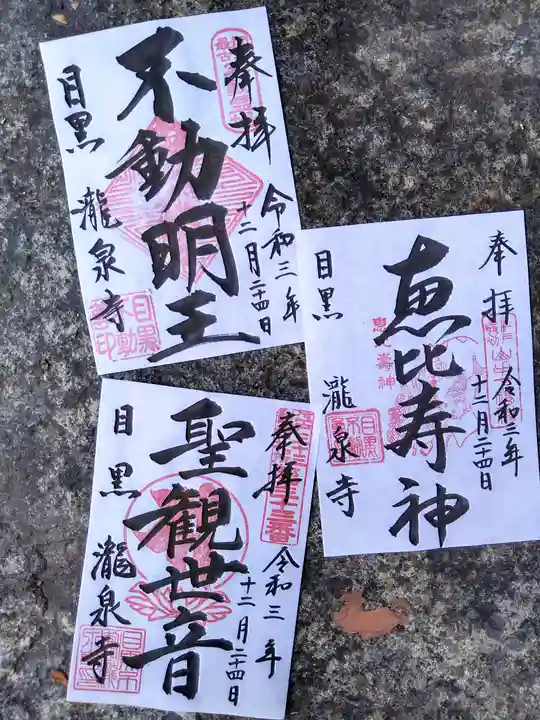 奉拝
不動明王
令和三年
十二月二十四日
目黒
瀧泉寺
奉拝
恵比寿神
令和三年
十二月二十四日
恵比寿神
目黒
瀧泉寺
奉拝
聖観世音
令和三年
十二月二十四日
目黒
瀧泉寺